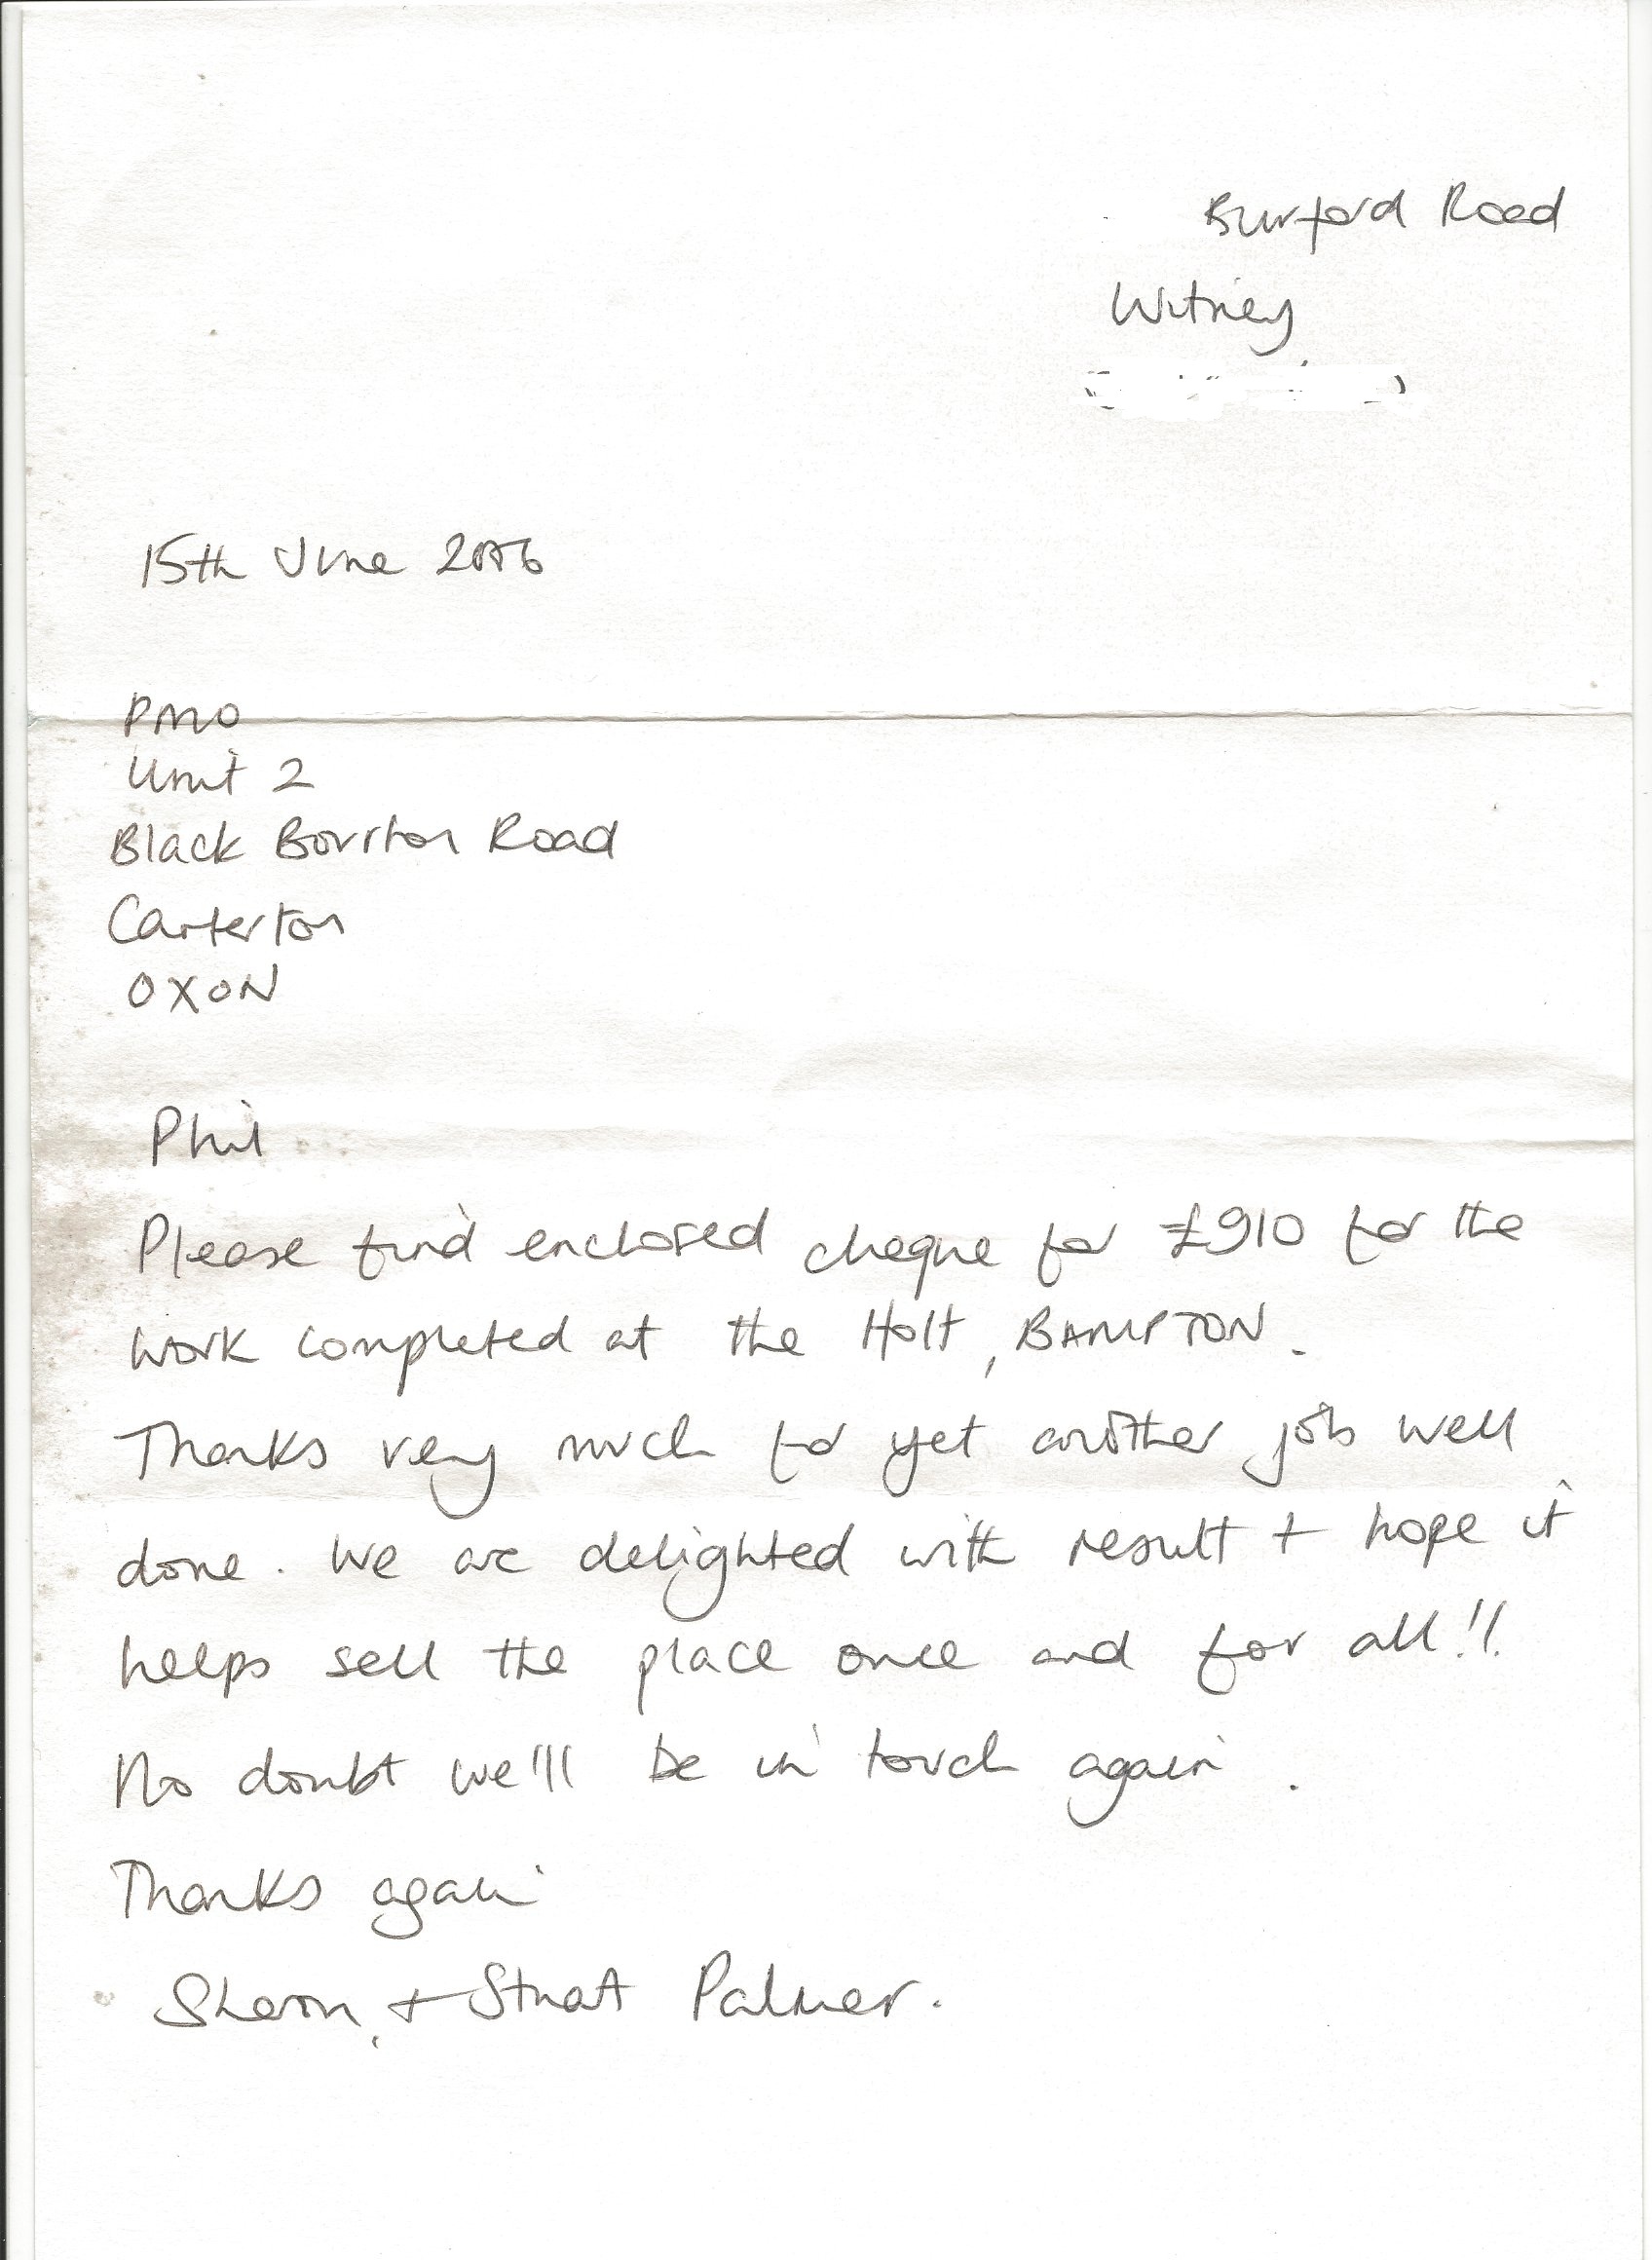 Burford Road
Witney
15th June
PMD
Unit 2
Black Bourton Road
Carterton
OXON
Phil
Please find enclosed cheque for £910 for the
work completed at the Holt, BAMPTON.
Thanks very much for yet another job well
done. We are delighted with result + hope it
helps sell the place once and for all!!
No doubt we'll be in touch again.
Thanks again
Sharon + Stuart Palmer.